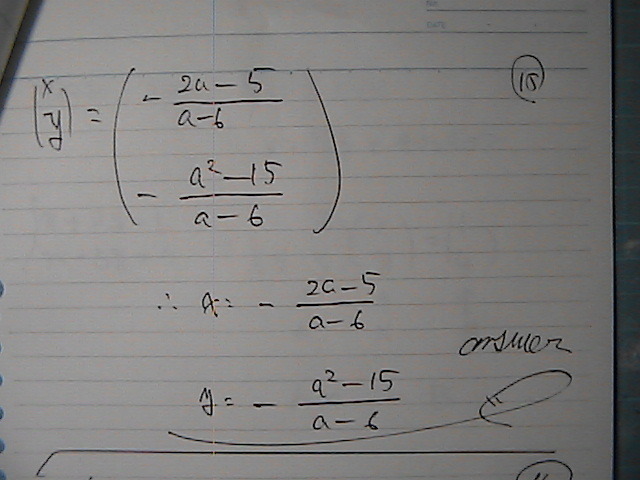 (15)
(x y) = (- (2a-5)/(a-6) - (a²-15)/(a-6))
∴ x = - (2a-5)/(a-6)
answer
y = - (a²-15)/(a-6)